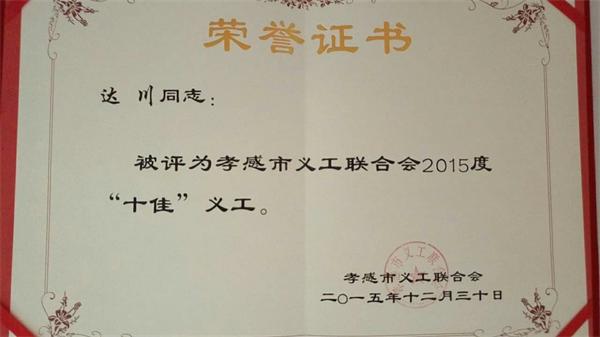 荣誉证书
达 川同志：
被评为孝感市义工联合会2015度
“十佳”义工。
孝感市义工联合会
二〇一五年十二月三十日